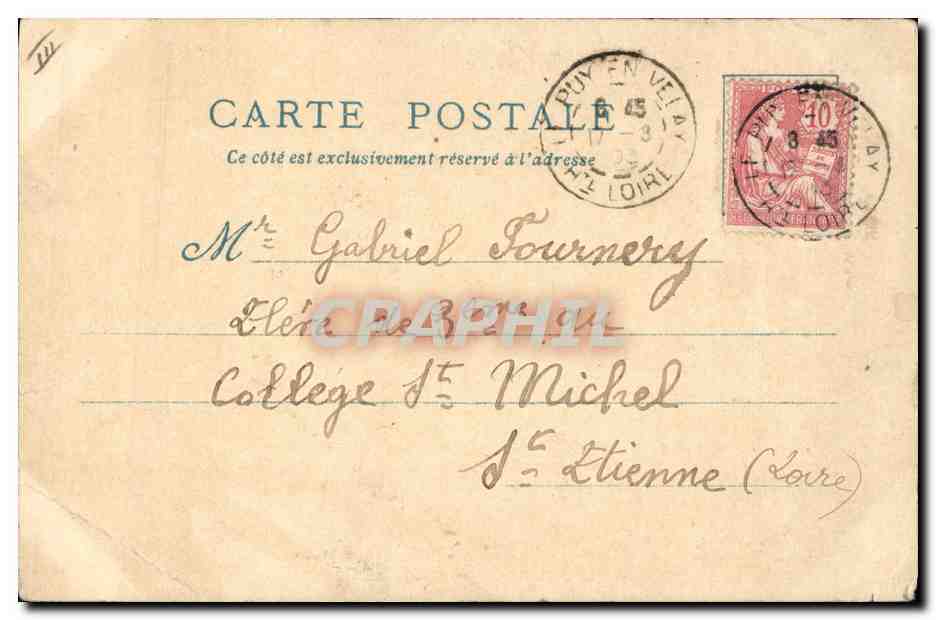 III
CARTE POSTALE
Ce côté est exclusivement réservé à l'adresse
LE PUY EN VELAY
8 45
Hte LOIRE
10
LE PUY EN VELAY
8 45
Hte LOIRE
Mr Gabriel Fournery
Élève de 3ème au
CPAPHIL
Collège St Michel
St Étienne (Loire)